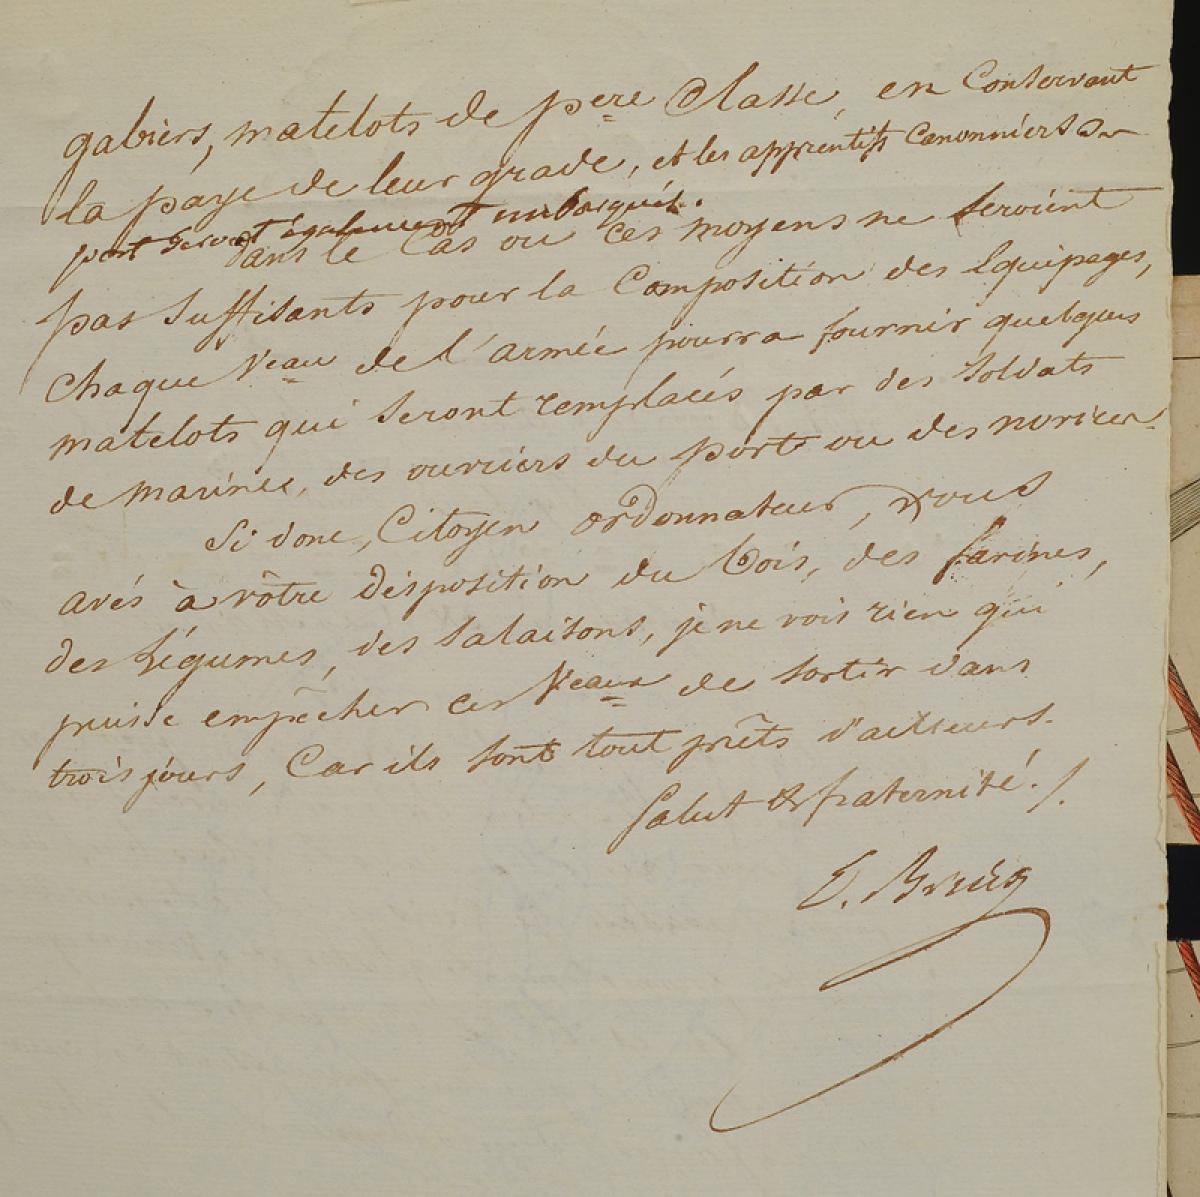 gabiers, matelots de pere Classe, en Conservant
la paye de leur grade, et les apprentifs canonniers du
port seront également embarqués.
dans le Cas ou ces moyens ne seroient
pas suffisants pour la Composition des Equipages,
chaque Veau de l'armée pourra fournir quelques
matelots qui seront remplacés par des soldats
de marine, des ouvriers du port ou des novices.
Si donc, Citoyen ordonnateur, vous
avés à vôtre disposition du bois, des farines,
des légumes, des salaisons, je ne vois rien qui
puisse empêcher ces Veaux de sortir dans
trois jours, Car ils sont tout prêts d'ailleurs.
Salut & fraternité./.
E. Bruix